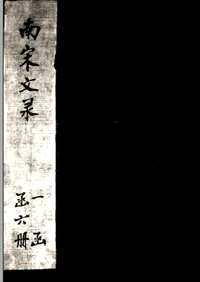 南宋文录
一函
函六册